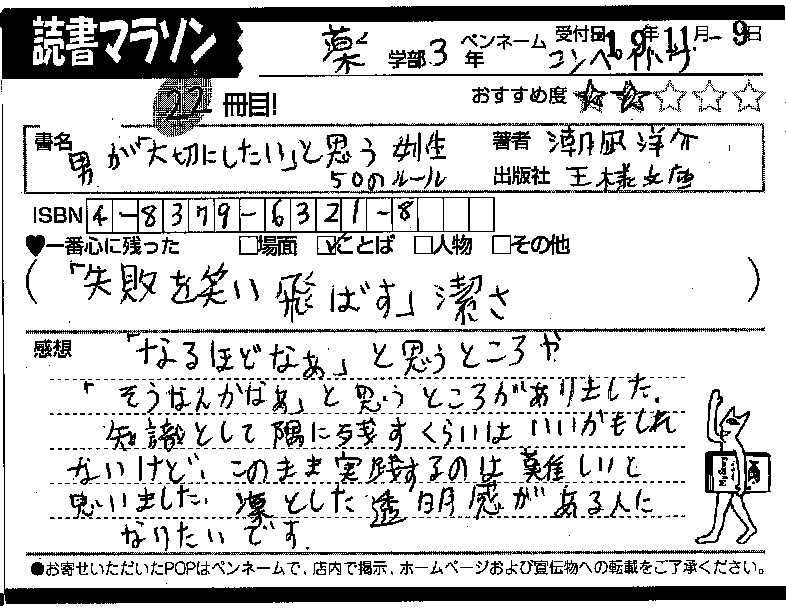 読書マラソン
薬 学部 3年 ペンネーム コンペイトウ 受付日 19年11月-9日
22 冊目! おすすめ度 ★★☆☆☆
書名 男が「大切にしたい」と思う女性 50のルール
著者 潮凪洋介
出版社 王様文庫
ISBN 4-8379-6321-8
♥一番心に残った □場面 ☑ことば □人物 □その他
(「失敗を笑い飛ばす」潔さ)
感想 「なるほどなぁ」と思うところや
「そうなんかなぁ」と思うところがありました。
知識として隅に残すくらいは いいかもしれ
ないけど、このまま実践するのは難しいと
思いました。凜とした透明感がある人に
なりたいです。
●お寄せいただいたPOPはペンネームで、店内で掲示、ホームページおよび宣伝物への転載をご了承ください。